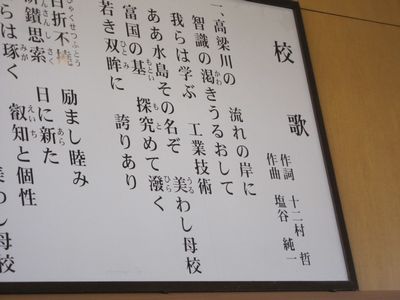 校歌
作詞 十二村 哲
作曲 塩谷 純一
一、高梁川の 流れの岸に
智識の渇きうるおして
我らは学ぶ 工業技術
ああ水島その名ぞ 美わし母校
富国の基 探究めて潑く
若き双眸に 誇りあり
百折不撓 励まし睦み
鑽思索 日に新た
らは琢く 叡知と個性
わし母校